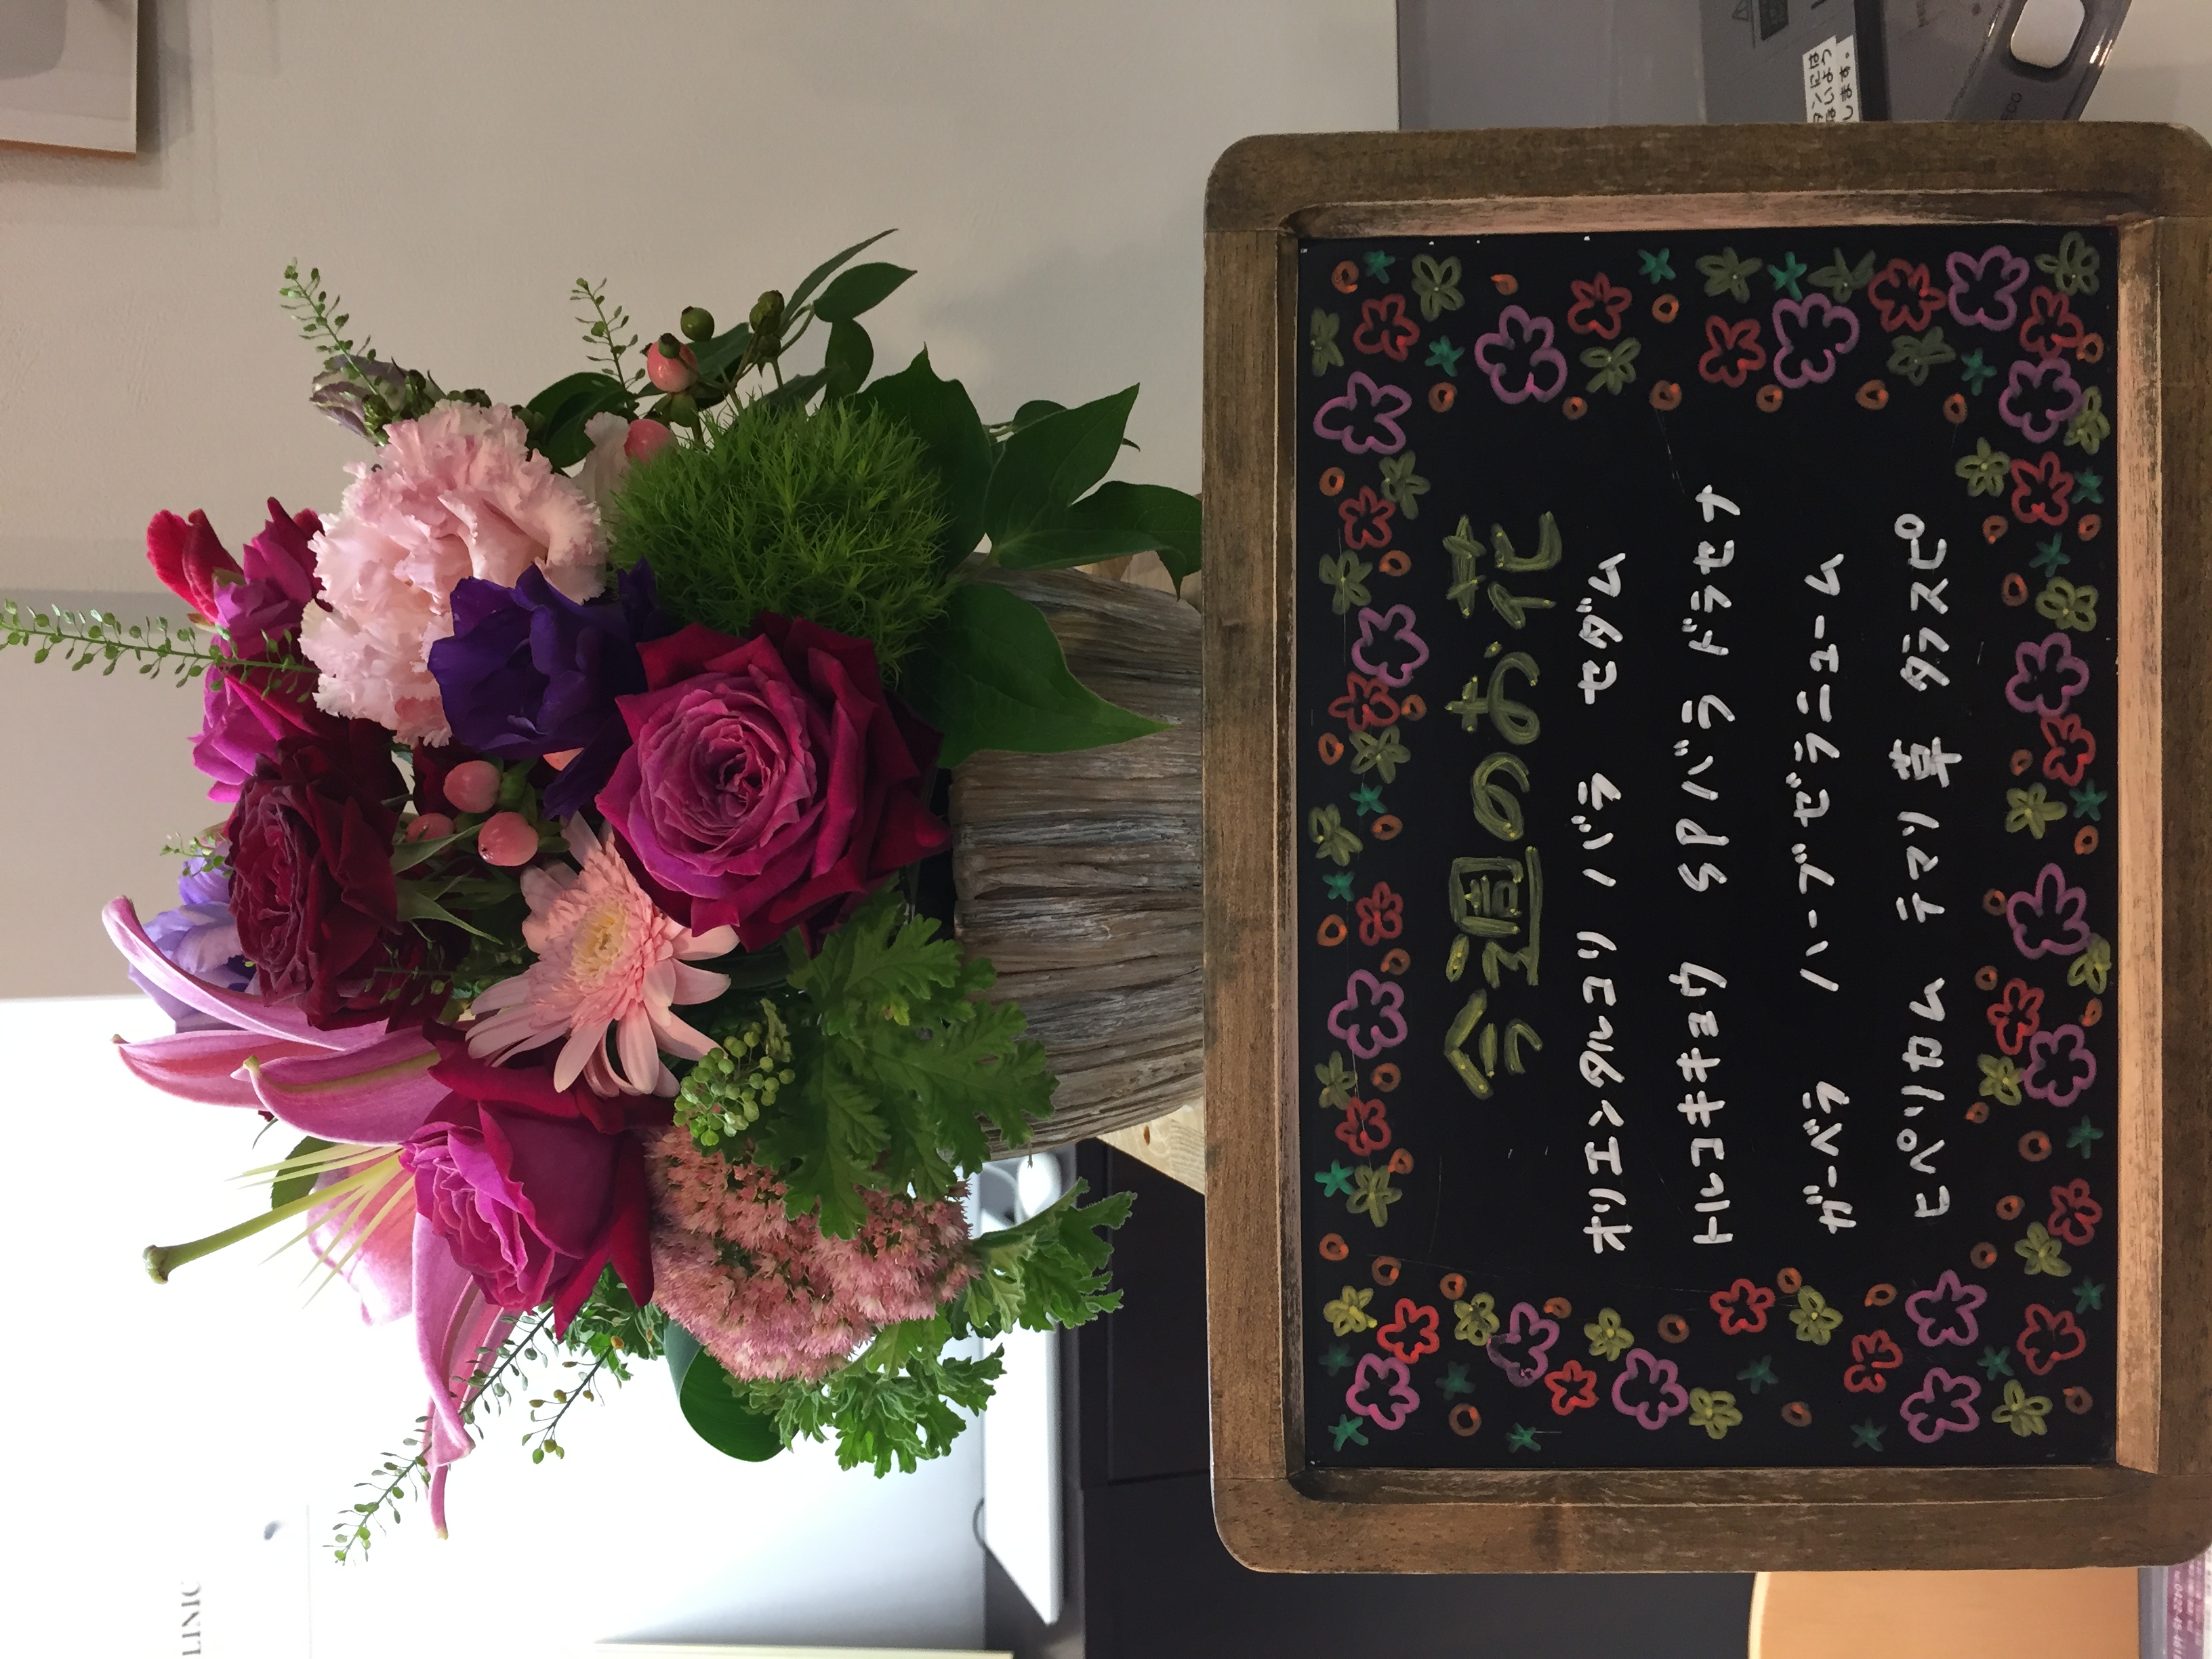 今週のお花
オリエンタルユリ バラ セダム
トルコキキョウ SPバラ ドラセナ
ガーベラ ハーブゼラニューム
ヒペリカム テマリ草 タラスピ
LINIC
します。